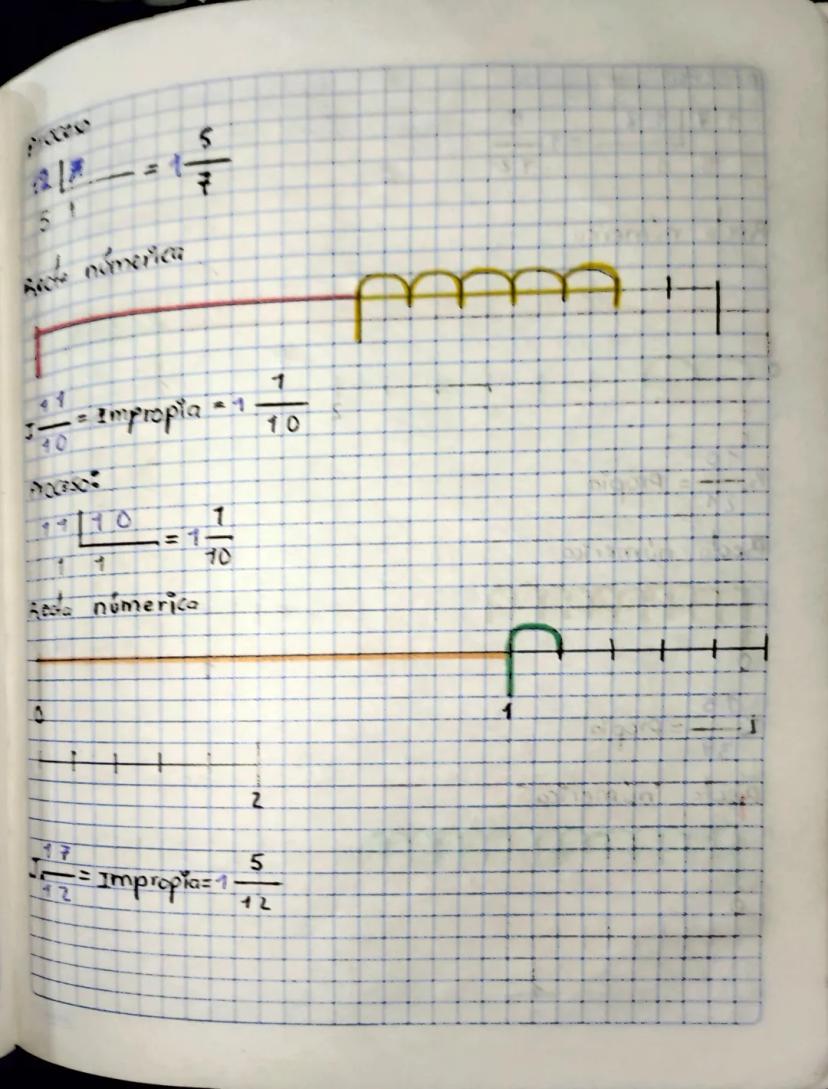 Proceso
12 7 = 1 5/7
5 1
Recta númerica
I 11/10 = Impropia = 1 1/10
Proceso:
11 10 = 1 1/10
1 1
Recta númerica
0 1
2
I 17/12 = Impropia = 1 5/12